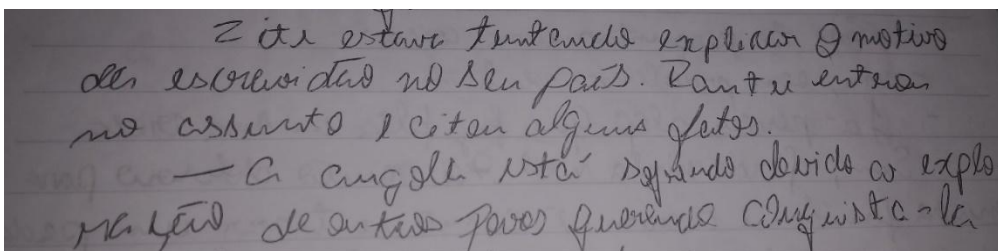 Zitu estava tentando explicar o motivo
da escravidão no seu país. Rantu entrou
no assunto e citou alguns fatos.
— A angola está sofrendo devido a explo
ração de outros povos querendo conquista-la